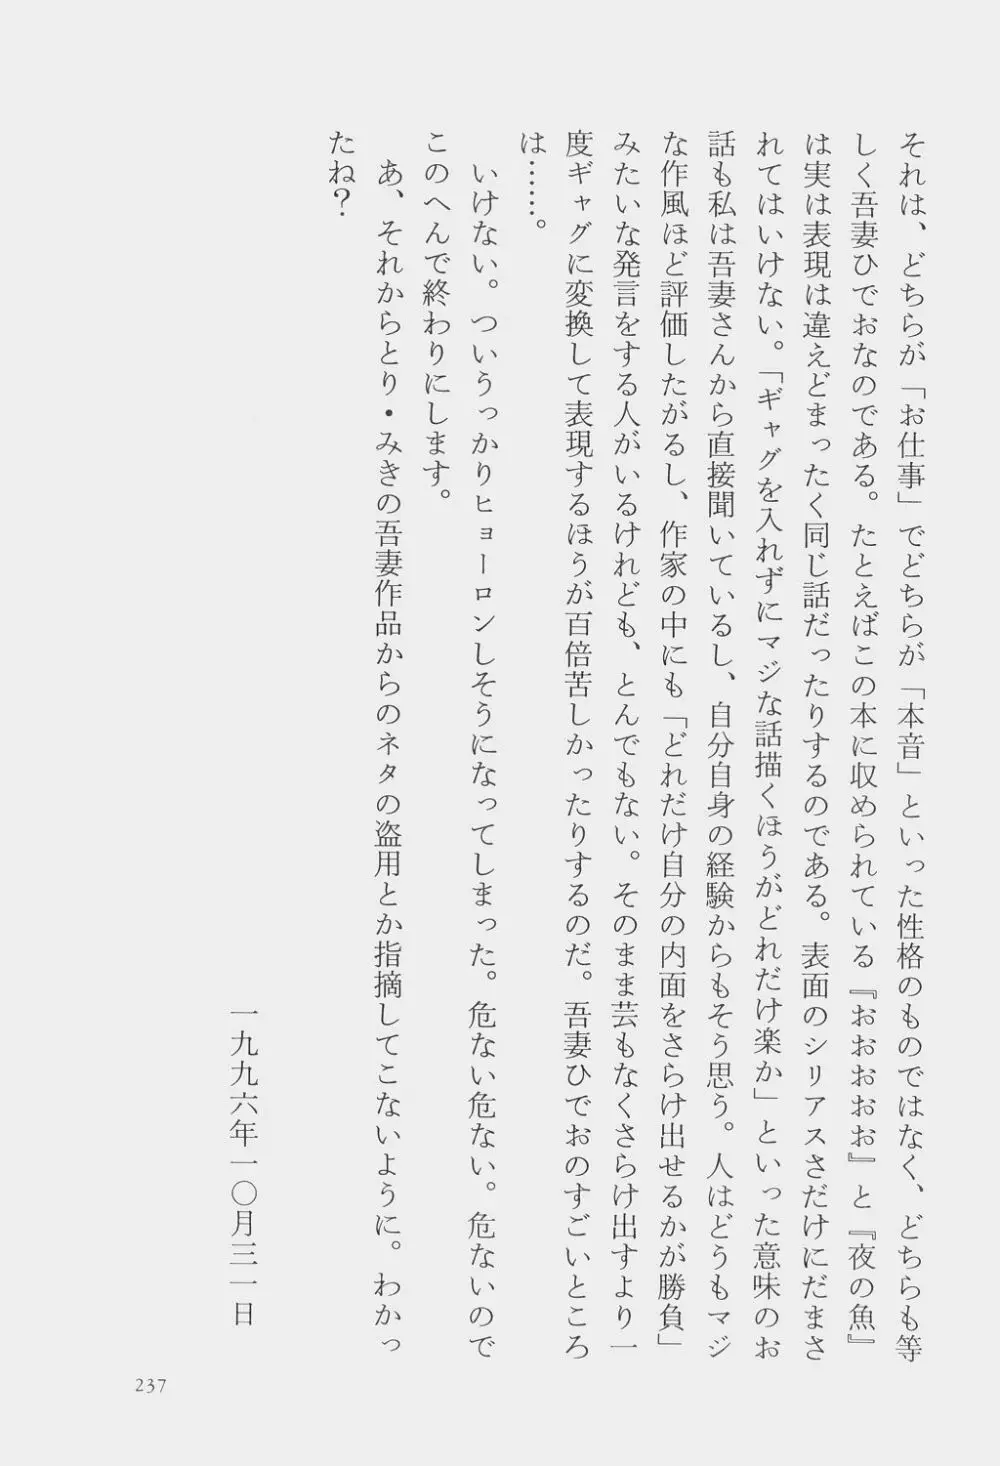 それは、どちらが「お仕事」でどちらが「本音」といった性格のものではなく、どちらも等
しく吾妻ひでおなのである。たとえばこの本に収められている『おおおおお』と『夜の魚』
は実は表現は違えどまったく同じ話だったりするのである。表面のシリアスさだけにだまさ
れてはいけない。「ギャグを入れずにマジな話描くほうがどれだけ楽か」といった意味のお
話も私は吾妻さんから直接聞いているし、自分自身の経験からもそう思う。人はどうもマジ
な作風ほど評価したがるし、作家の中にも「どれだけ自分の内面をさらけ出せるかが勝負」
みたいな発言をする人がいるけれども、とんでもない。そのまま芸もなくさらけ出すより一
度ギャグに変換して表現するほうが百倍苦しかったりするのだ。吾妻ひでおのすごいところ
は……。
いけない。ついうっかりヒョーロンしそうになってしまった。危ない危ない。危ないので
このへんで終わりにします。
あ、それからとり・みきの吾妻作品からのネタの盗用とか指摘してこないように。わかっ
たね？
一九九六年一〇月三一日
237